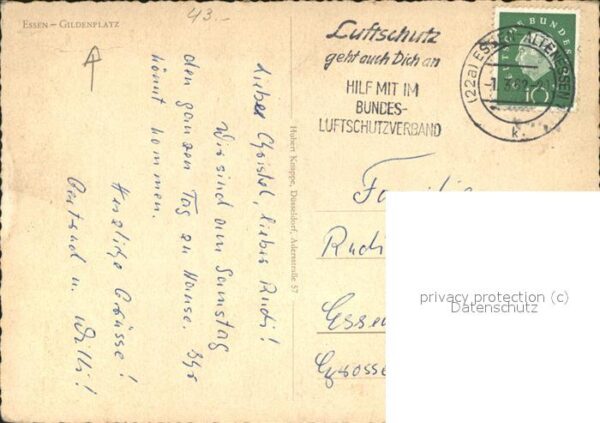 43.-
ESSEN – GILDENPLATZ
Liebe Christel, lieber Rudi!
Wir sind am Samstag
den ganzen Tag zu Hause. Ihr
könnt kommen.
Herzliche Grüsse!
u. Willi!
Hubert Knuppe, Düsseldorf, Adersstraße 57
Luftschutz
geht auch Dich an
HILF MIT IM
BUNDES-
LUFTSCHUTZVERBAND
(22a) ESSEN-ALTENESSEN
k
BUNDES
10
Rudi
Essen
privacy protection (c)
Datenschutz